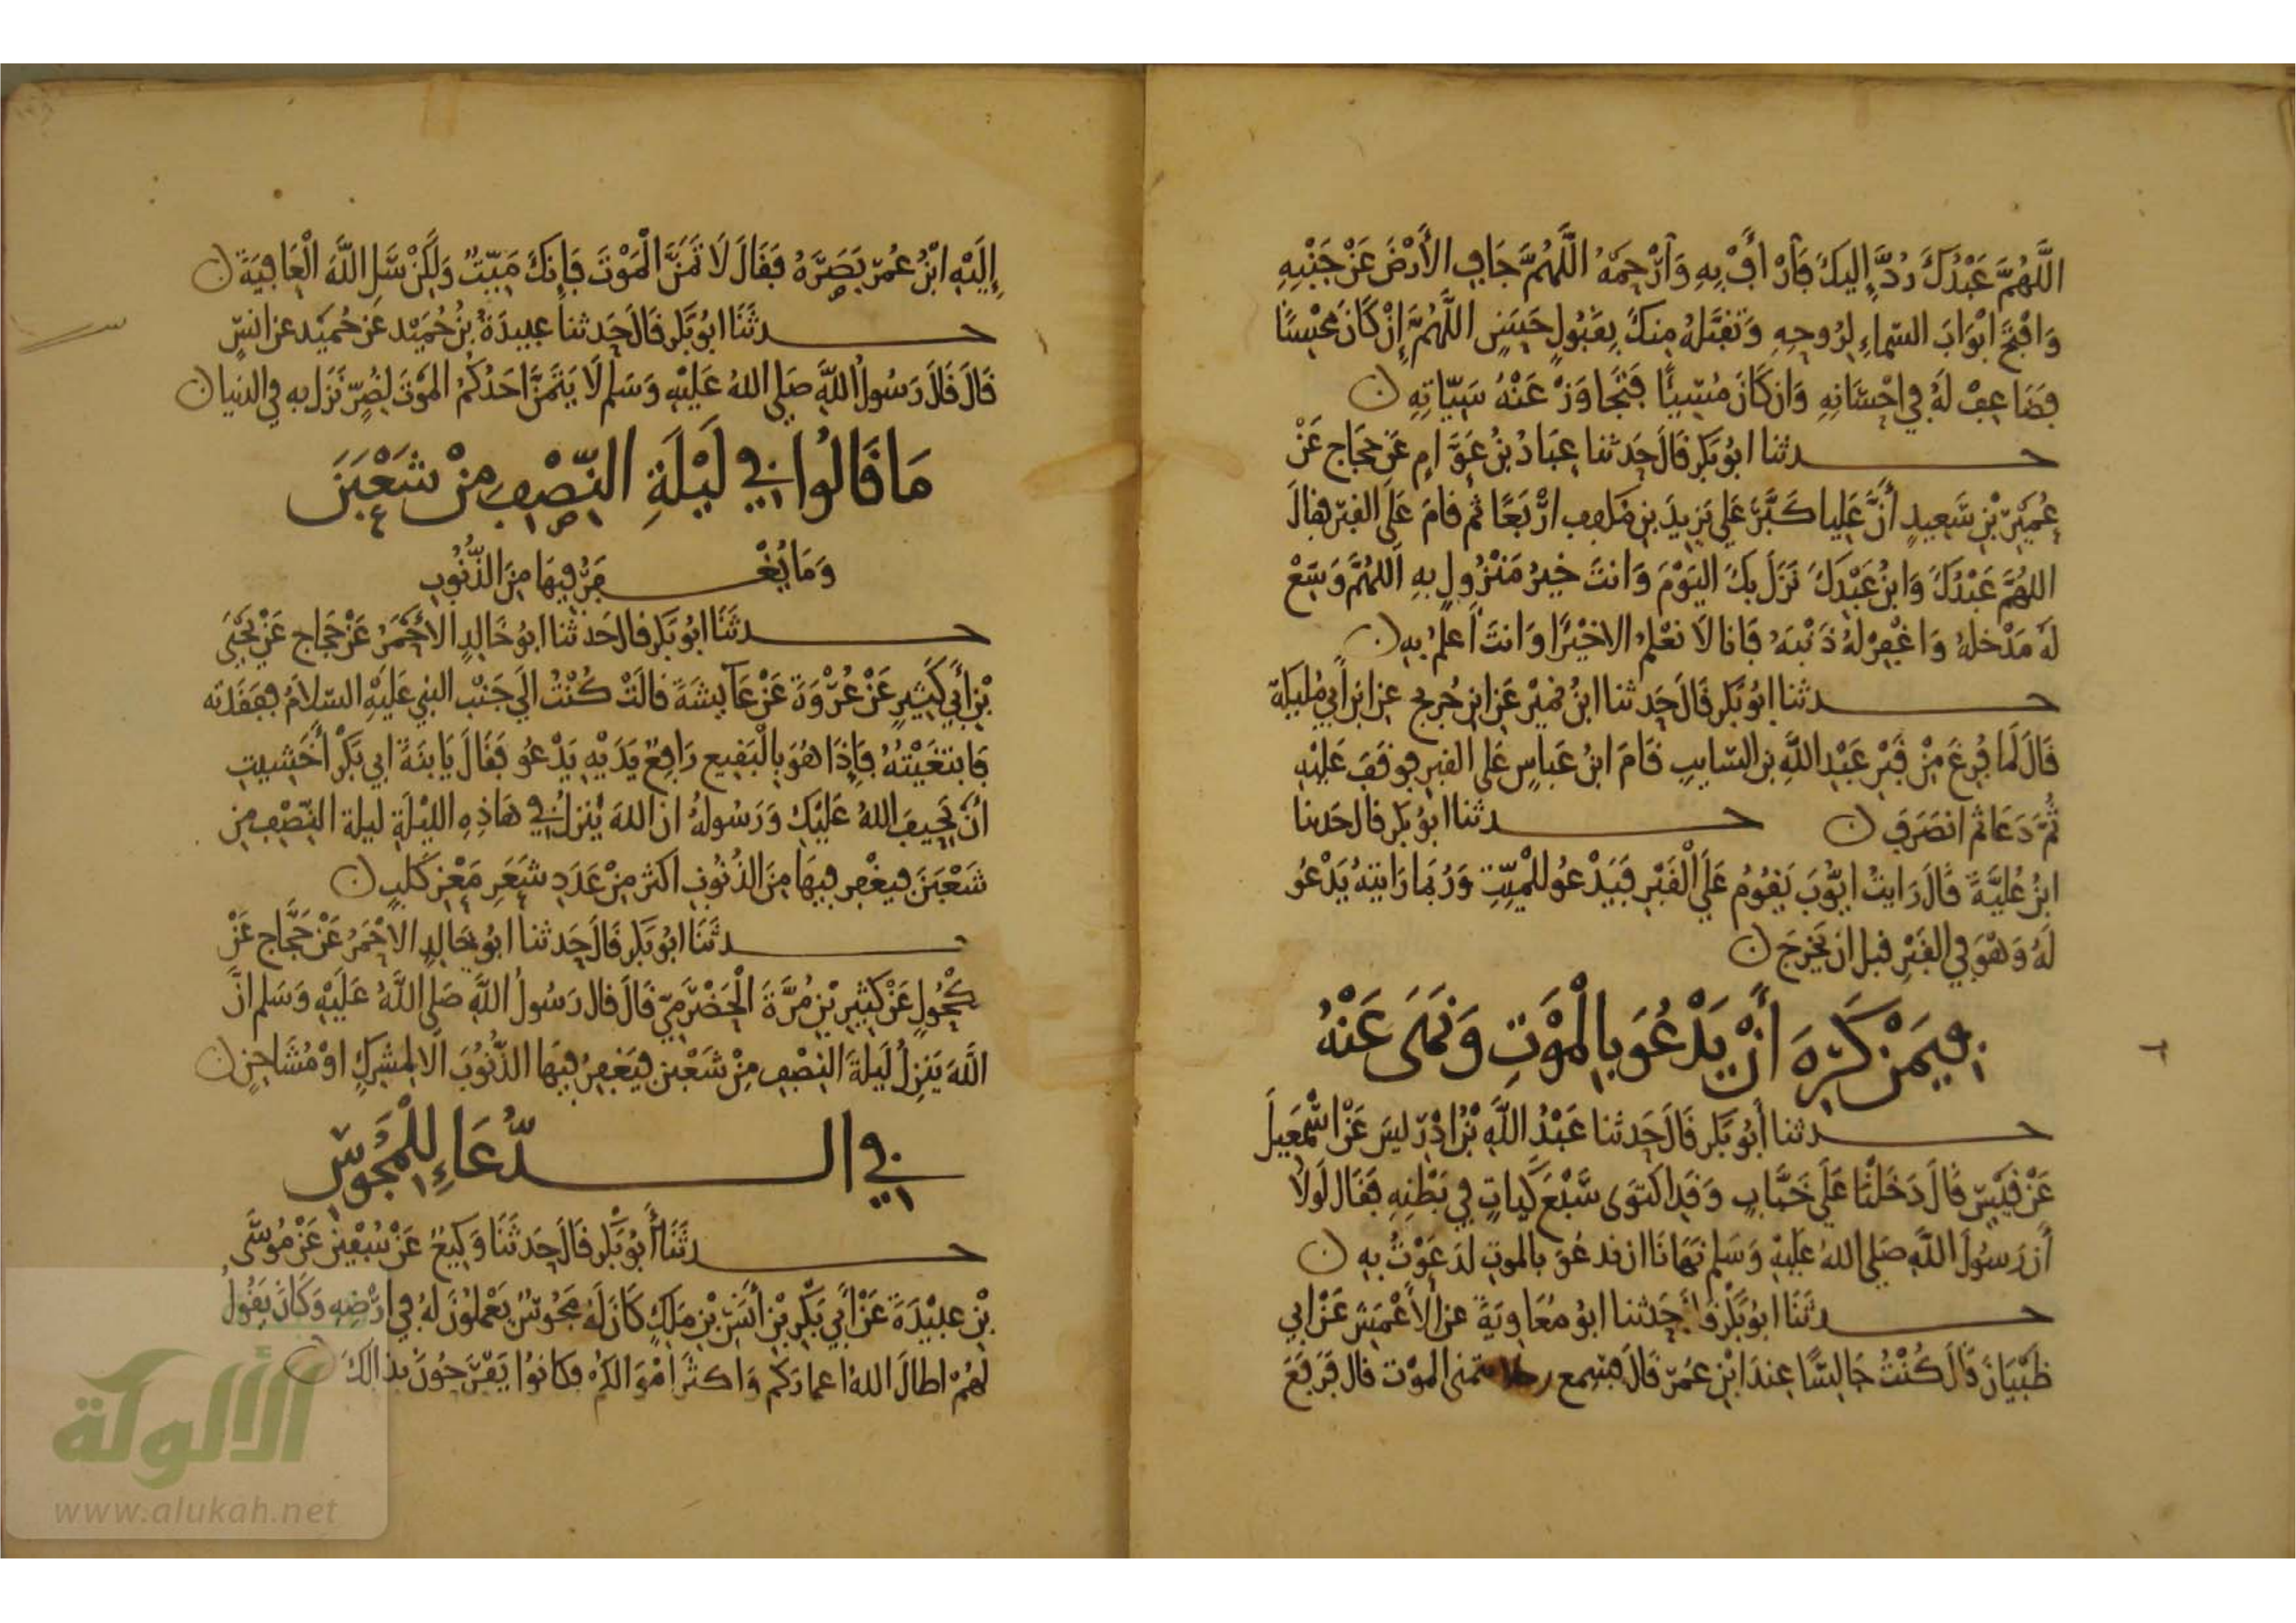 اللَّهُمَّ عَبْدُكَ رُدَّ إِلَيكَ فَارْأَفْ بِهِ وَارْحَمْهُ اللَّهُمَّ جَافِ الأَرْضَ عَنْ جَنْبِهِ
وَافْتَحْ ابْوَابَ السّمَاءِ لِرُوحِهِ وَتَقَبَّلهُ مِنكَ بِقَبُولٍ حَسَنٍ اللَّهُمَّ إِنْ كَانَ مُحْسِنًا
فَضَاعِفْ لَهُ فِي احْسَانِهِ وَان كَانَ مُسِيئًا فَتَجَاوَزْ عَنْهُ سَيّاتِهِ ن
حدثنا ابُو بَكرٍ قَالَ حَدثنا عبَادُ بْنُ عَوَّامٍ عَن حجَاج عَنْ
عُمَيْرِ بْنِ سَعِيدٍ أَنَّ عَلِيا كَبَّرَ عَلي يَزِيدَ بنِ مكَففِ ارْبَعًا ثم قامَ عَلَى القَبْرِ فقالَ
اللهُمَّ عَبْدُكَ وَابنُ عَبْدِكَ نَزَلَ بكَ اليَوْمَ وَانتَ خَيرُ مَنْزُولٍ بِهِ اللهُمَّ وَسّعْ
لَهُ مَدْخلهُ وَاغْفِرْ لهُ ذَنْبَهُ فَانا لاَ نَعْلمُ الا خَيْرًا وَانتَ أَعلمُ بهِ ن
حدثنا ابُو بَكرٍ قَالَ حَدثنا ابنُ نميْرٍ عَن ابنِ جُريج عن ابن أَبي مُليكَة
قَالَ لَمّا فُرِغَ مِنْ قَبْرِ عَبْدِ اللَّهِ بن السّايبِ قَامَ ابنُ عَباسٍ عَلى القبرِ فوَقَفَ عَليْهِ
ثُمَّ دَعَا ثم انصَرَفَ ن حدثنا ابُو بكرٍ قال حَدثنا
ابنُ عُليَّةَ قَالَ رَايتُ ايُّوبَ يَقُومُ عَلَى الْقَبْرِ فَيَدْعُو للْميِّتِ وَرُبمَا رَايتهُ يَدْعُو
لَهُ وَهْوَ فِي القَبْرِ قبلَ ان يَخرجَ ن
فِيمَنْ كَرِهَ أَنْ يَدْعُوَ بِالْمَوْتِ وَنَهَى عَنْهُ
حدثنا أبُو بَكرٍ قَالَ حَدثنا عَبْدُ اللَّهِ بْنُ ادْرِيسَ عَنْ اسْمَعِيلَ
عَنْ قَيْسٍ قَالَ دَخَلْنَا عَلَى خَبَّابٍ وَقَدِ اكتَوَى سَبْعَ كَيّاتٍ فِي بَطْنِهِ فَقَالَ لَوْلا
أَن رَسُولَ اللَّهِ صَلى اللهُ عَليهِ وَسَلم نَهَانَا ان ندعُوَ بالموتِ لدَعَوْتُ بهِ ن
حدثَنَا ابُو بَكْرٍ قَالَ حَدثنا ابُو مُعَاوِيَةَ عن الأَعْمَشِ عَنْ ابي
ظَبْيَانَ قَالَ كُنْتُ جَالِسًا عِندَ ابْنِ عمَرَ قَالَ فسَمع رجلا يتمنى الموْت قال فَرَفَعَ
إِلَيْهِ ابْنُ عُمَرَ بَصَرَهُ فَقَالَ لاَ تَمَنَّ الْمَوْتَ فَإِنكَ مَيّتٌ وَلَكِنْ سَلِ اللَّهَ الْعَافِيَةَ ن
حدثَنَا ابُو بَكرٍ قَالَ حَدثنا عبيدَةُ بْنُ حُمَيْدٍ عَن حُميْدٍ عن انسٍ
قَالَ قَالَ رَسُولُ اللَّهِ صَلي اللهُ عَليْهِ وَسَلم لاَ يَتَمنَّ احَدُكُمْ الموْتَ لضُرٍّ نَزَل به فِي الدنيا ن
مَا قَالُوا فِي لَيْلَةِ النِّصْفِ مِنْ شَعْبَنَ
وَمَا يُغْفَرُ فِيهَا مِنَ الذُّنُوبِ
حدثَنَا ابُو بَكرٍ قال حَدثنا ابُو خَالِدٍ الاحْمَرُ عَنْ حجَاج عَنْ يَحْيَى
بْنِ أَبِي كَثِيرٍ عَنْ عُرْوَةَ عَنْ عَآيِشَةَ قَالَتْ كُنْتُ الَى جَنْبِ النبِي عَليْهِ السّلاَمُ فَفَقَدته
فَابْتَغَيْتُهُ فَإِذَا هُوَ بِالْبَقِيعِ رَافِعٌ يَدَيْهِ يَدْعُو فَقَالَ يَابنَةَ ابي بَكْرٍ أَخَشِيتِ
انْ يَحِيفَ اللهُ عَليْكِ وَرَسُولهُ ان اللهَ يَنزلُ فِي هَاذِهِ الليْلَةِ ليلةِ النّصْفِ مِن
شَعْبَنَ فيغْفِر فيهَا مِنَ الذُّنُوبِ اكثَر مِنْ عَدَدِ شَعَرِ مَعْزِ كَلْبٍ ن
حدثَنَا ابُو بَكرٍ قَالَ حَدثنا ابُو خَالِدٍ الاحْمَرُ عَنْ حَجَّاج عَنْ
مَكْحُولٍ عَنْ كَثِيرِ بْنِ مُرَّةَ الْحَضْرَمِيّ قَالَ قال رَسُولُ اللَّهِ صَلى اللَّهُ عَلَيْهِ وَسَلم انَّ
اللَّهَ يَنزِلُ لَيلَةَ النّصْفِ مِنْ شَعْبن فيَغفِرُ فيهَا الذُّنُوبَ الاَّ لمشْرِكٍ اوْ مُشَاحِنٍ ن
فِي الدُّعَاءِ لِلْمَجُوسِ
حدثَنَا أَبُو بَكْرٍ قَالَ حَدثَنَا وَكِيعٌ عَنْ سُفْيَنَ عَنْ مُوسَى
بْنِ عبيْدَةَ عَنْ أَبِي بَكْرِ بْنِ أَنَسِ بْنِ مَلِكٍ كَانَ لَهُ مَجُوسٌ يَعْملوُنَ لهُ فِي ارْضِهِ وَكَانَ يَقُولُ
لهُمْ اطالَ اللهُ اعمارَكم وَاكثَرَ امْوَالكمْ فكانوُا يَفْرَحُونَ بذَالكَ ن
الألوكة
www.alukah.net